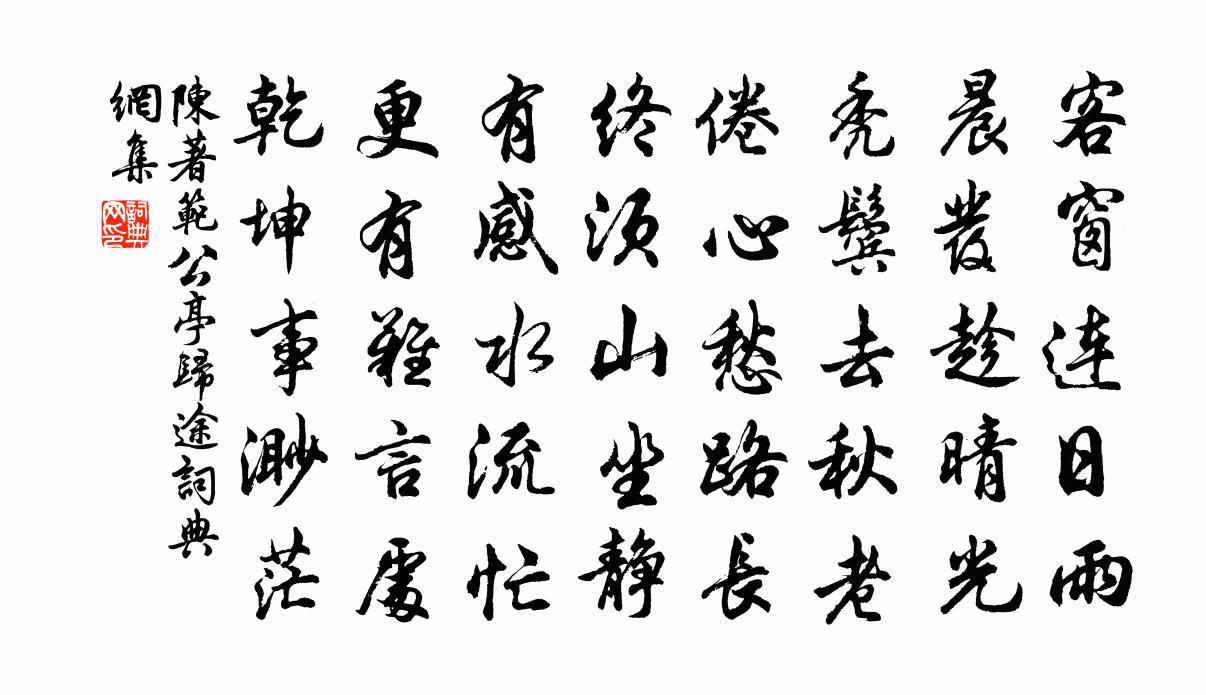 客窗連日雨
晨發趁晴光
禿鬢去秋老
倦心愁路長
終須山坐靜
有感水流忙
更有難言處
乾坤事渺茫
陳著範公亭歸途詞典
網集
詞典
网印